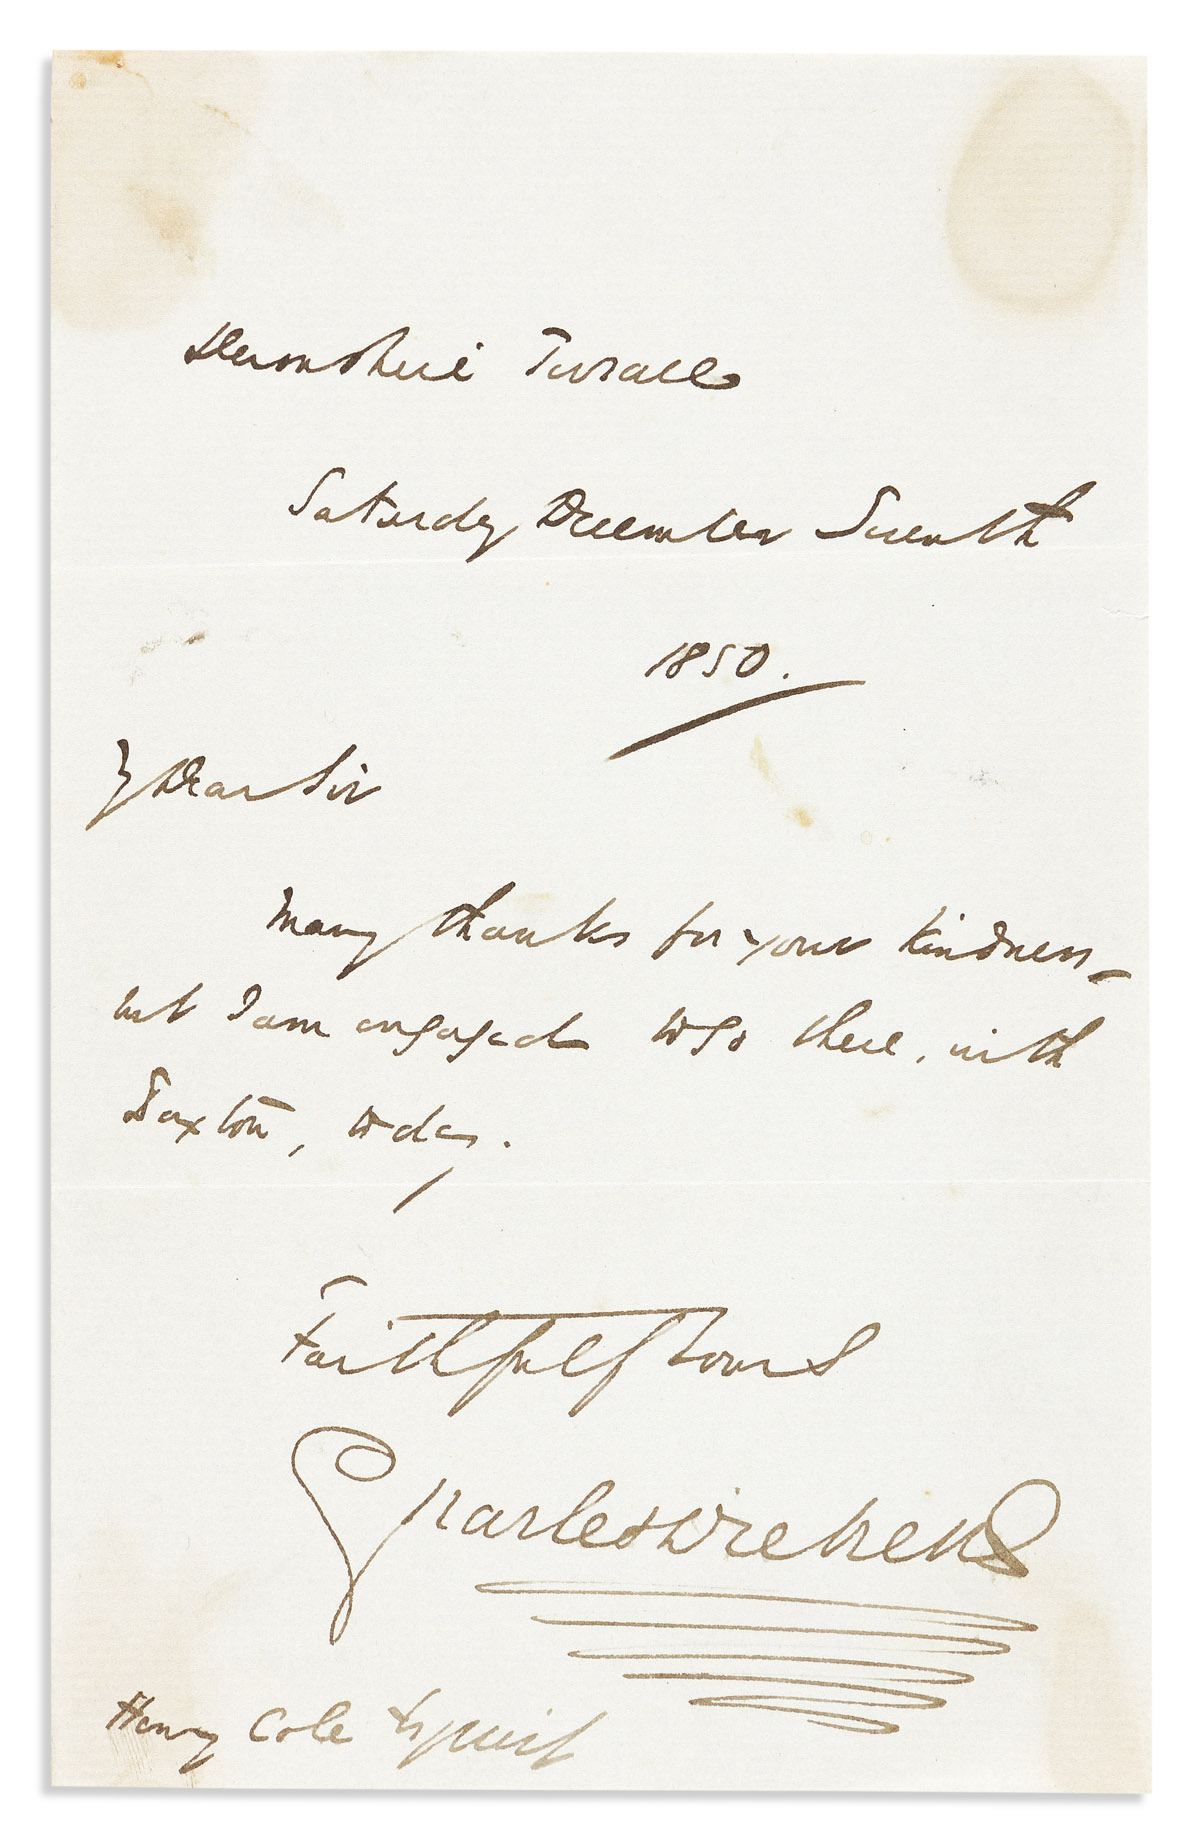 Devonshire Terrace
Saturday December Seventh
1850.
My Dear Sir
Many thanks for your kindness –
but I am engaged to go there, with
Paxton, today.
Faithfully Yours
Charles Dickens
Henry Cole Esquire